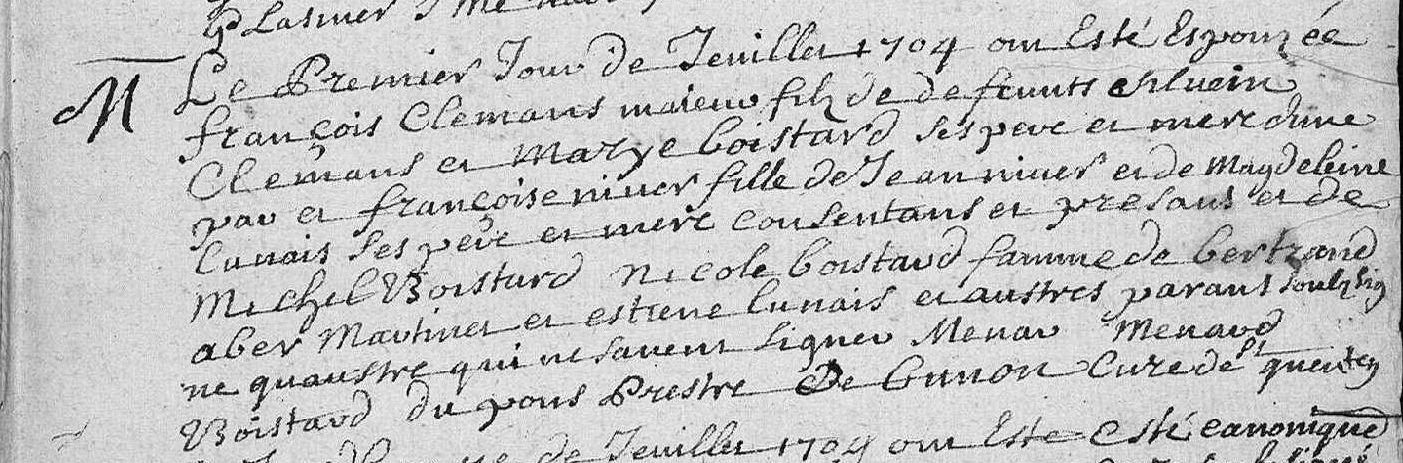 Lasnier
M Le Premier Jour de Jeuillet 1704 ont Esté Espouzée
françois Clemans maieur filz de defeunts silvein
Clemans et Marye boistard ses pere et mere dune
par et françoise niver fille de Jean niver et de Magdeleine
lunais ses pere et mere consentans et presans et de
Michel Boistard nicole boistard famme de bertrand
aber Martinet et estiene lunais et austres parans soulz sig
ne quaustre qui ne savent signer Menar Menard
Boistard du pons Prestre Cure de st quenten
de Jeuillet 1704 ont Este esté canonique